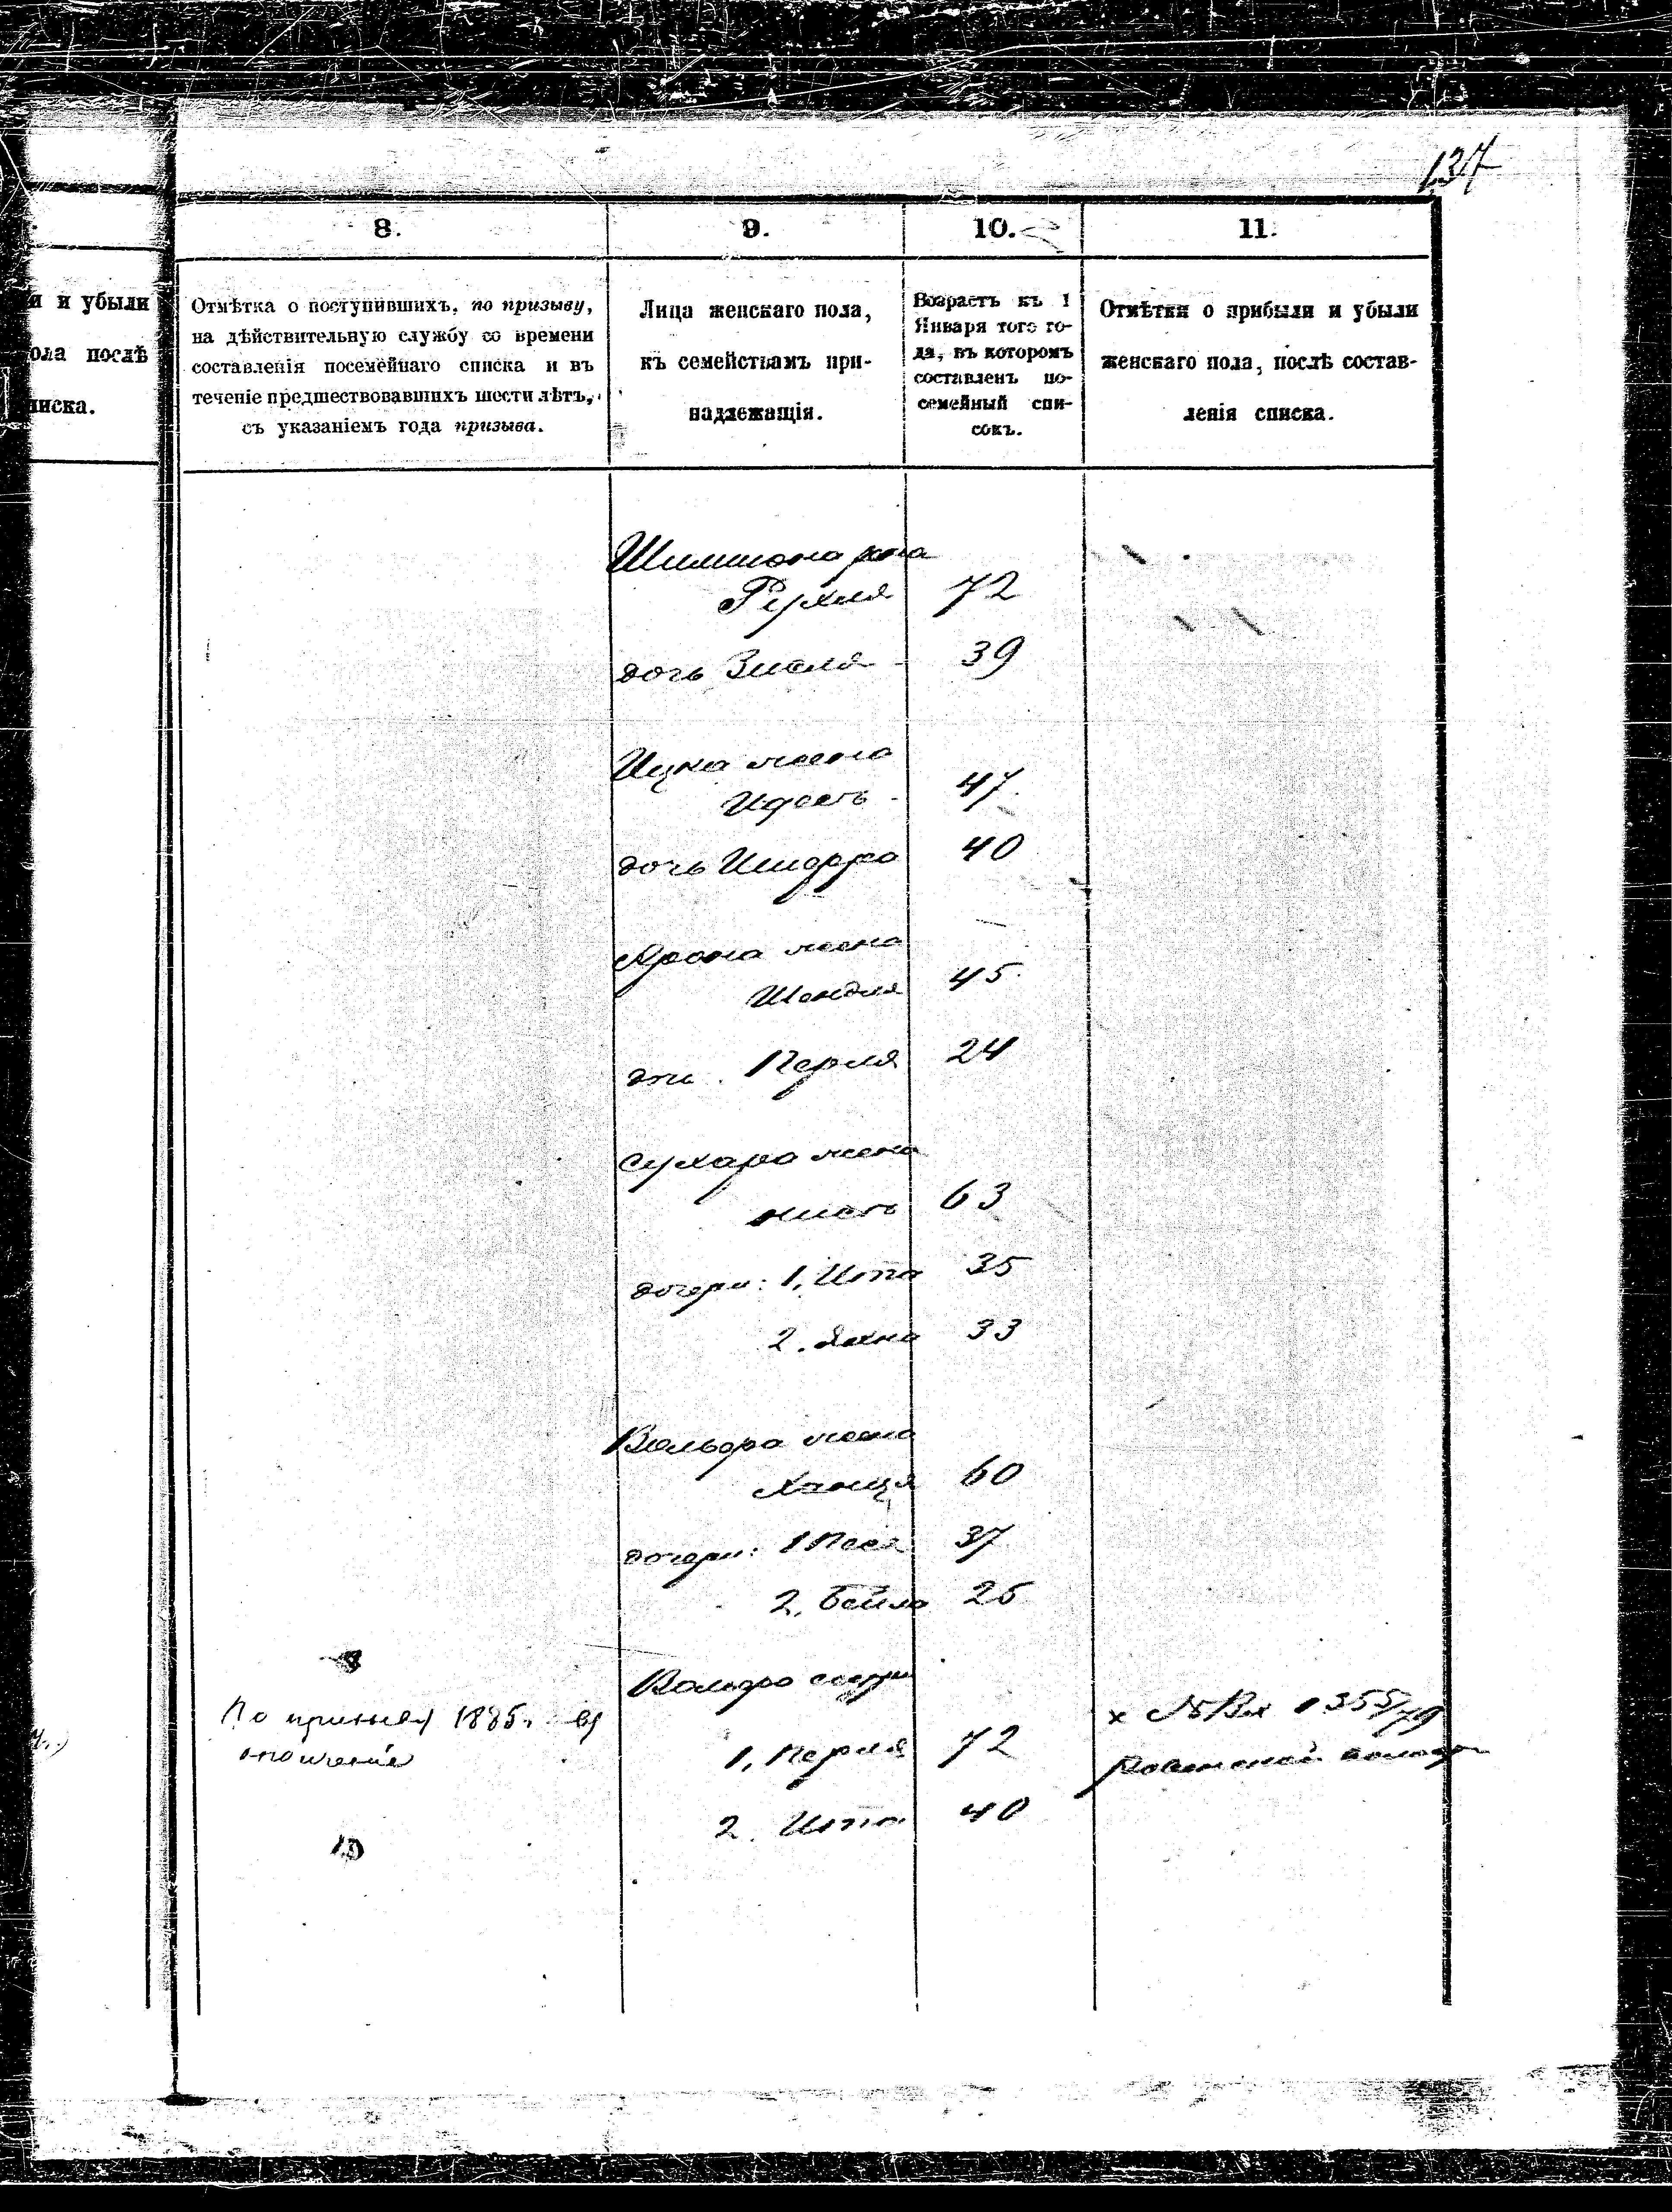 137
8.
9.
10.
11.
и и убыли
Отмѣтка о поступившихъ, по призыву,
на дѣйствительную службу со времени
составленія посемейнаго списка и въ
теченіе предшествовавшихъ шести лѣтъ,
съ указаніемъ года призыва.
Лица женскаго пола,
къ семействамъ при-
надлежащія.
Возрастъ къ 1
Января того го-
да, въ которомъ
составленъ по-
семейный спи-
сокъ.
Отмѣтки о прибыли и убыли
женскаго пола, послѣ состав-
ленія списка.
ола послѣ
писка.
Шимшона жена
Рухля 72
дочь Зисля 39
Ицка жена
Идесъ 47
дочь 40
Арона жена
Шендля 45
Перля 24
Сухара жена
63
дочери: 1, Ита 35
2. Яхна 33
Вольфа жена
60
дочери: 1 Песя 37
2, Бейла 25
Вольфа сестры
1, Перля 72
2. Ита 40
По призыву 1885 г. въ
ополченіе
10
х № Вх 1355/79